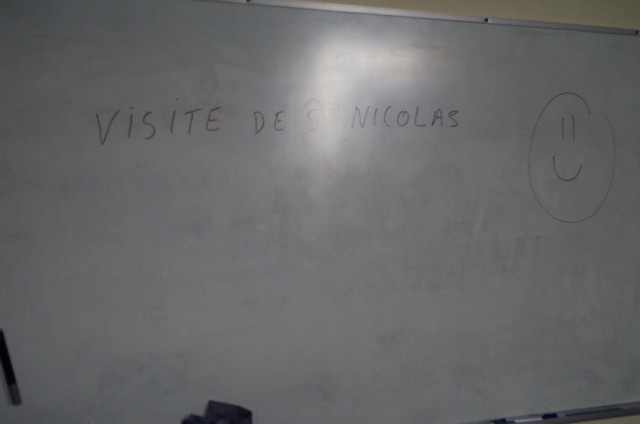 ViSiTE DE NICOLAS